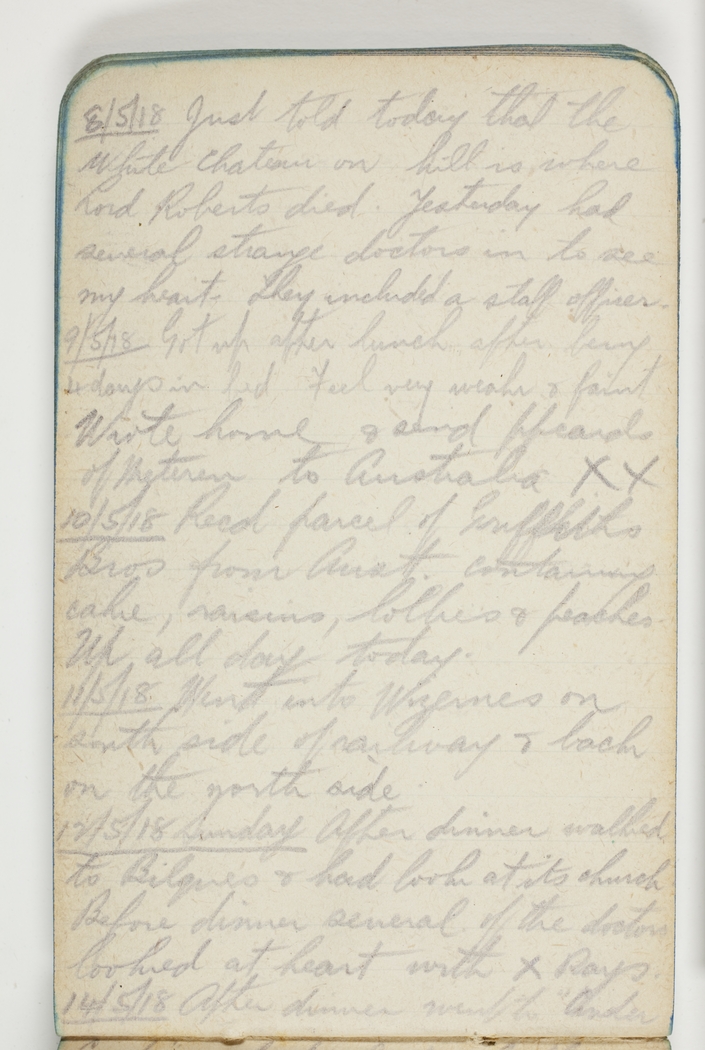 8/5/18 Just told today that the
White Chateau on hill is where
Lord Roberts died. Yesterday had
several strange doctors in to see
my heart. They included a staff officer.
9/5/18 Got up after lunch after being
4 days in bed Feel very weak & faint
Wrote home & send ppcards
of Meteren to Australia XX
10/5/18 Recd parcel of Griffiths
Bros from Aust. containing
cake, raisins, lollies & peaches.
Up all day today.
11/5/18. Went into Wizernes on
south side of railway & back
on the north side
12/5/18 Sunday After dinner walked
to Bilques & had look at its church
Before dinner several of the doctors
looked at heart with X Rays.
14/5/18 After dinner went to "Under